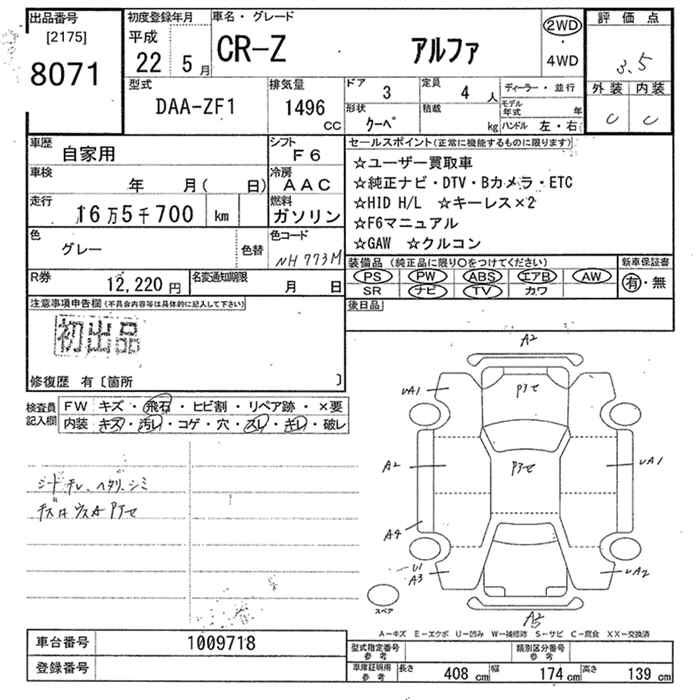 出品番号
[2175]
8071
初度登録年月
平成
22 5月
車名・グレード
CR-Z アルファ
2WD
4WD
評価点
3.5
外装 内装
C C
型式
DAA-ZF1
排気量
1496 CC
ドア 3
形状 クーペ
定員 4 人
積載 kg
ディーラー・並行
モデル年式 年
ハンドル 左・右
車歴
自家用
シフト
F6
車検
年 月( 日)
冷房
AAC
走行
16万5千700 km
燃料
ガソリン
色
グレー
色替
色コード
NH773M
R券
12,220円
名変通知期限
月 日
セールスポイント(正常に機能するものに限ります)
☆ユーザー買取車
☆純正ナビ・DTV・Bカメラ・ETC
☆HID H/L ☆キーレス×2
☆F6マニュアル
☆GAW ☆クルコン
装備品 (純正品に限り○をつけてください)
PS PW ABS エアB AW
SR ナビ TV カワ
新車保証書
有・無
後日品
注意事項申告欄(不具合内容等は具体的に記入して下さい)
初出品
修復歴 有〔箇所 〕
検査員
記入欄
FW キズ・飛石・ヒビ割・リペア跡・×要
内装 キズ・汚レ・コゲ・穴・スレ・キレ・破レ
シートチレ、ヘタリ、シミ
A2
UA1
アテ
A2
アテ
UA1
A4
U1
A3
UA2
A2
スペア
A-キズ E-エクボ U-凹み W-補修跡 S-サビ C-腐食 XX-交換済
車台番号
1009718
登録番号
型式指定番号
参考
類別区分番号
参考
車庫証明用
参考
長さ 408 cm 幅 174 cm 高さ 139 cm